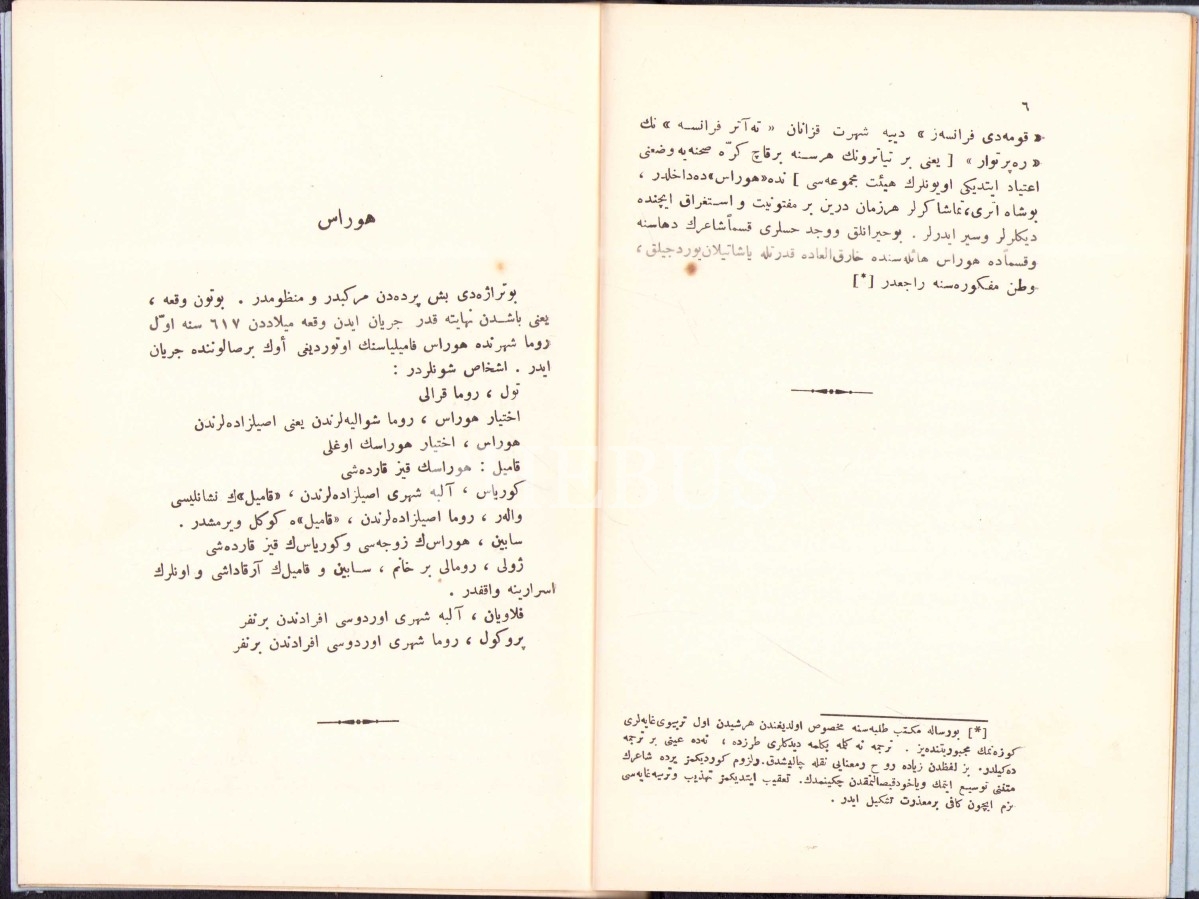 ٦
« قومه‌دی فرانسه‌ز » دییه شهرت قزانان « ته‌آتر فرانسه » نك
« ره‌پرتوار » [ یعنی بر تیاترونك هرسنه برقاچ كرّه صحنه‌یه وضعنی
اعتیاد ایتدیكی اویونلرك هیئت مجموعه‌سی ] نده«هوراس»ده‌داخلدر ،
بوشاه اثری،تماشاكرلر هرزمان درین بر مفتونیت و استغراق ایچنده
دیكلرلر وسیر ایدرلر . بوحیرانلق ووجد حسلری قسماًشاعرك دهاسنه
وقسماًده هوراس هائله‌سنده خارق‌العاده قدرتله یاشاتیلان‌یوردجیلق ،
وطن مفكوره‌سنه راجعدر [*]
[*] بورساله مكتب طلبه‌سنه مخصوص اولدیغندن هرشیدن اول تربیوی‌غایه‌لری
كوزه‌تمك مجبوریتنده‌یز . ترجمه نه كله بكلمه دیدكلری طرزده ، نه‌ده عینی بر ترجمه
ده‌كیلدر. بز لفظدن زیاده روح ومعنایی نقله چالیشدق.ولزوم كوردیكمز یرده شاعرك
متننی توسیع ایتمك ویاخودقیصالتمقدن چكینمه‌دك. تعقیب ایتدیكمز تهذیب وتربیه‌غایه‌سی
بزم ایچون كافی برمعذرت تشكیل ایدر .
هوراس
بوتراژه‌دی بش پرده‌دن مركبدر و منظومدر . بوتون وقعه ،
یعنی باشدن نهایته قدر جریان ایدن وقعه میلاددن ٦١٧ سنه اوّل
روما شهرنده هوراس فامیلیاسنك اوتوردیغی أوك برصالوننده جریان
ایدر . اشخاص شونلردر :
تول ، روما قرالی
اختیار هوراس ، روما شوالیه‌لرندن یعنی اصیلزاده‌لرندن
هوراس ، اختیار هوراسك اوغلی
قامیل : هوراسك قیز قارده‌شی
كوریاس ، آلبه شهری اصیلزاده‌لرندن ، «قامیل»ك نشانلیسی
والهر ، روما اصیلزاده‌لرندن ، «قامیل»ه كوكل ویرمشدر .
سابین ، هوراس‌ك زوجه‌سی وكوریاس‌ك قیز قارده‌شی
ژولی ، رومالی بر خانم ، سابین و قامیل‌ك آرقاداشی و اونلرك
اسرارینه واقفدر .
فلاویان ، آلبه شهری اوردوسی افرادندن برنفر
پروكول ، روما شهری اوردوسی افرادندن برنفر